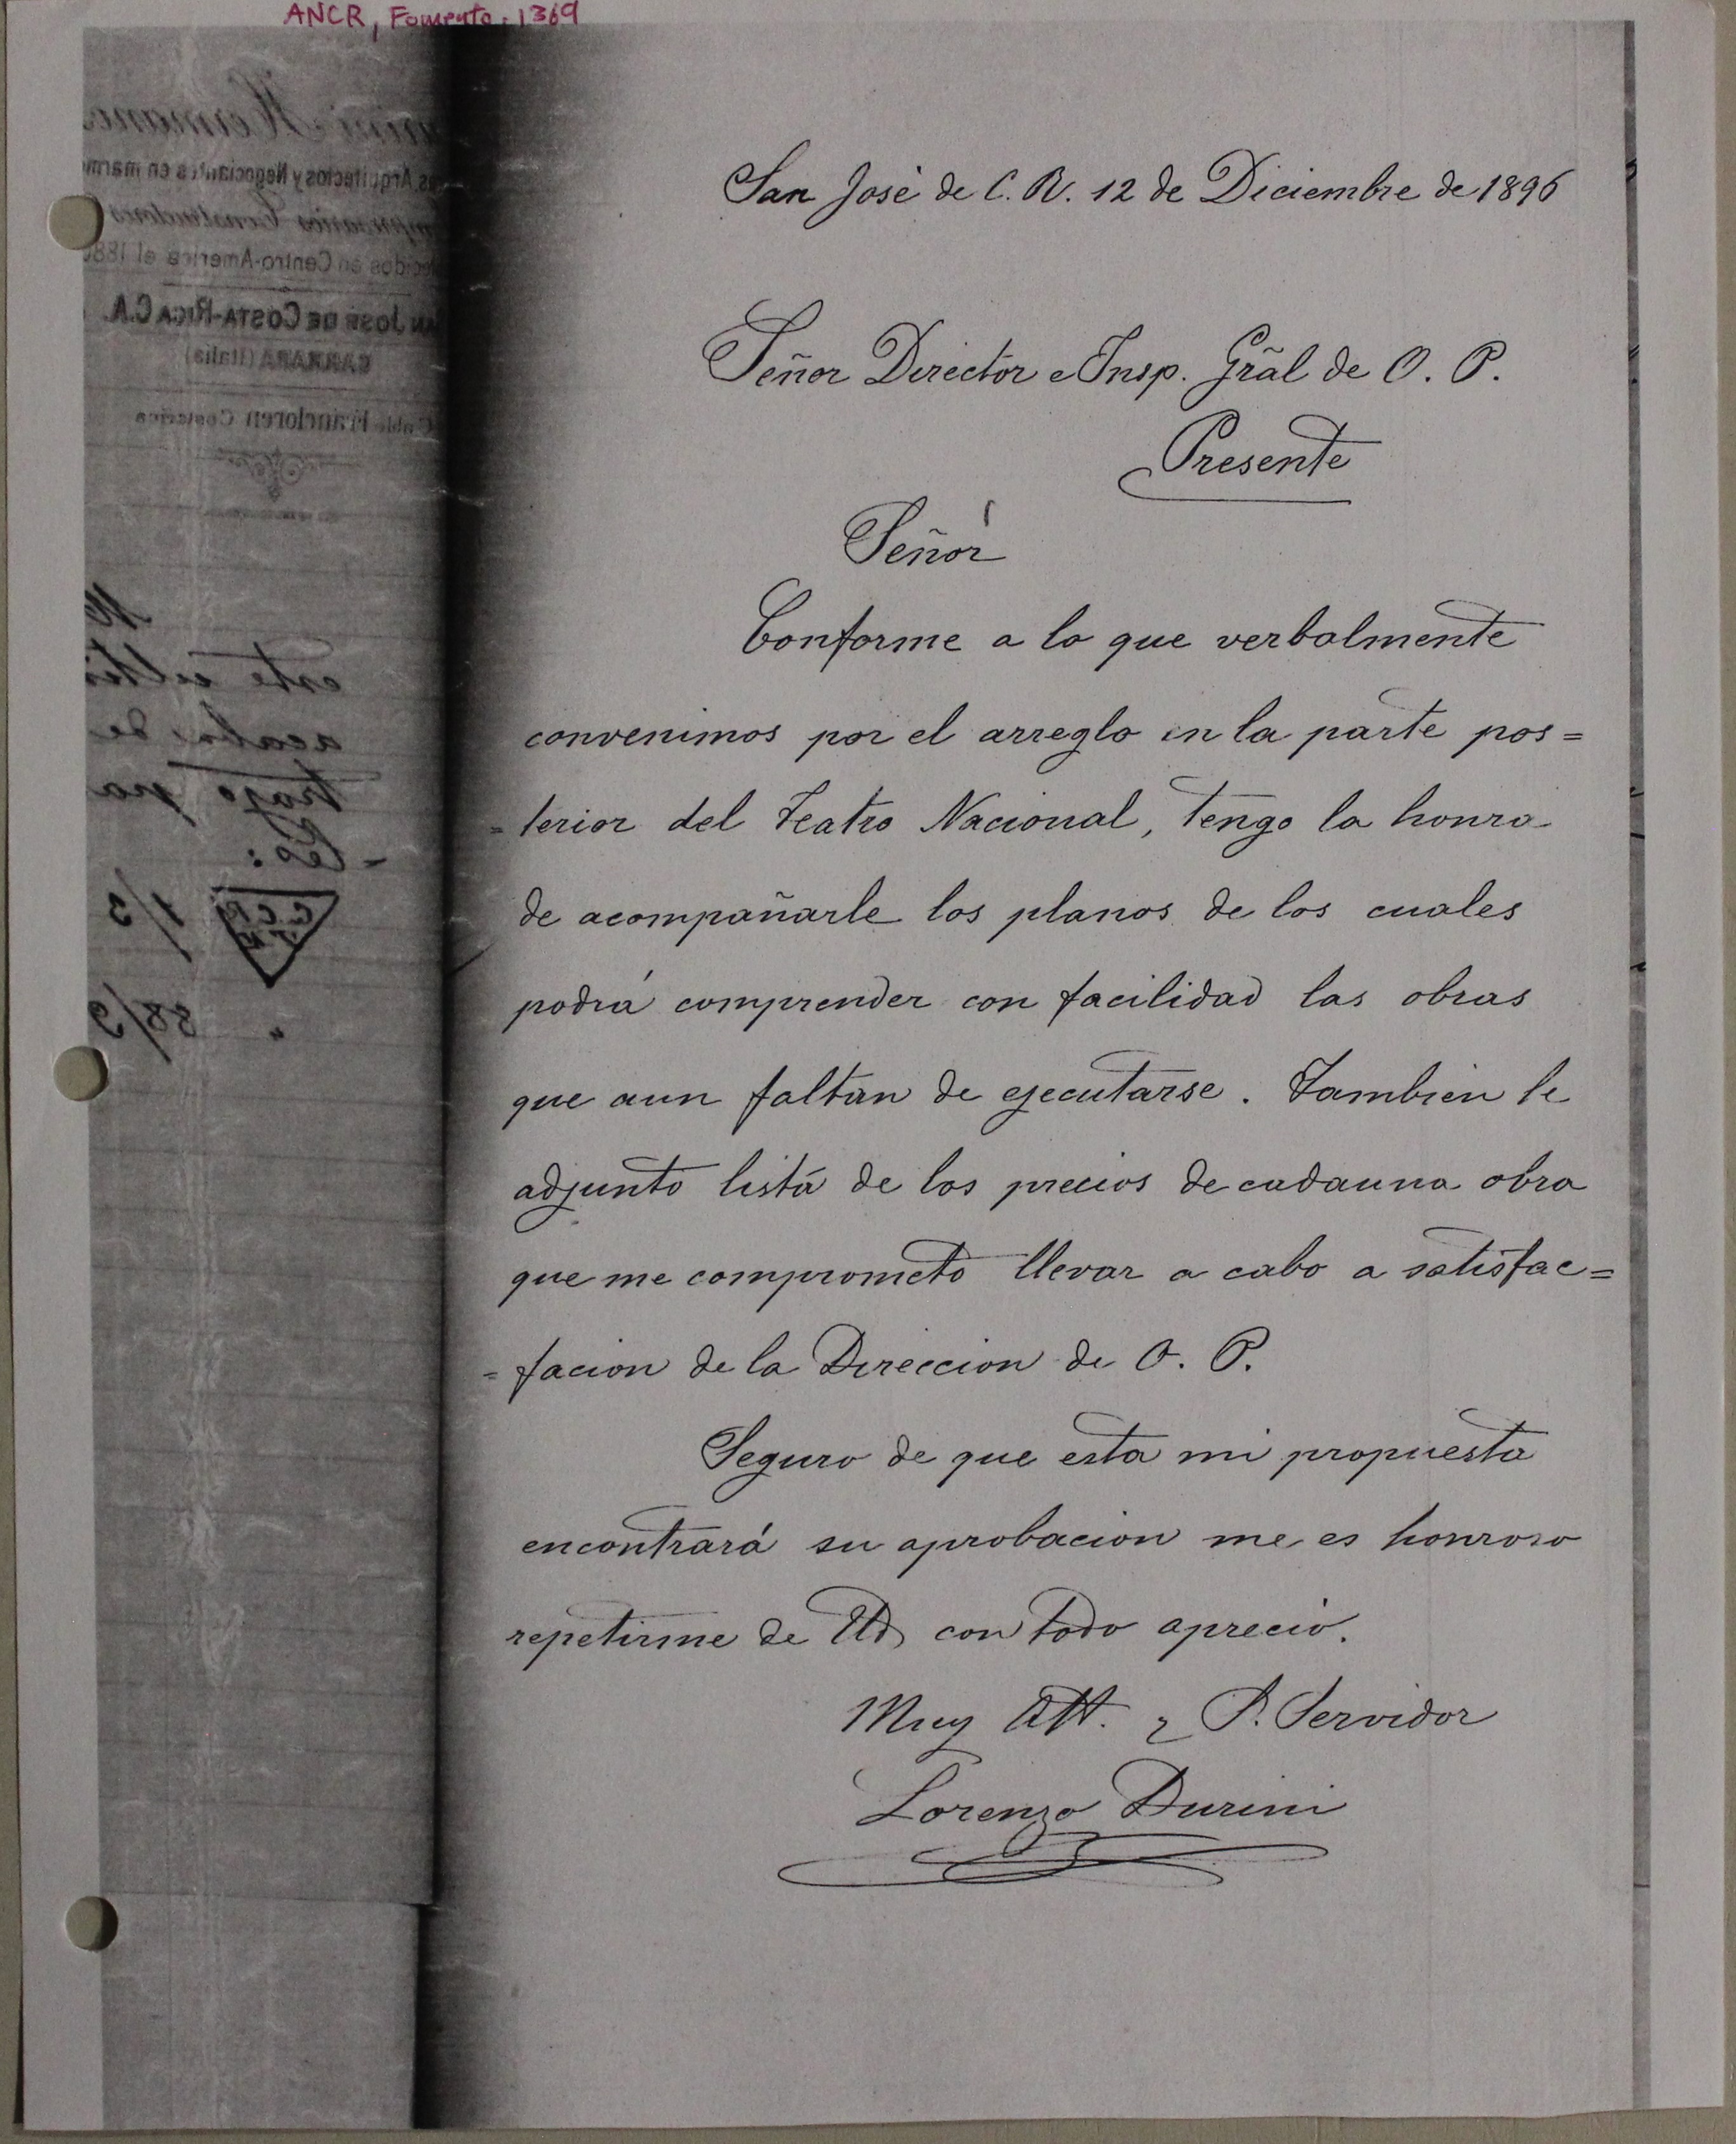 ANCR, Fomento, 1369
San José de C. R. 12 de Diciembre de 1896
Señor Director e Insp. Gräl de O. P.
Presente
Señor
Conforme a lo que verbalmente
convenimos por el arreglo en la parte pos=
=terior del Teatro Nacional, tengo la honra
de acompañarle los planos de los cuales
podrá comprender con facilidad las obras
que aun faltan de ejecutarse. Tambien le
adjunto listá de los precios de cadauna obra
que me comprometo llevar a cabo a satisfac=
=facion de la Direccion de O. P.
Seguro de que esta mi propuesta
encontrará su aprobacion me es honroso
repetirme de Ud con todo aprecio.
Muy Att. y S. Servidor
Lorenzo Durini
Hermano
Arquitectos y Negociantes en marm
Constructores
en Centro-America el 188
San José de Costa-Rica C.A.
CARRARA (Italia)
Cable Francloren Costarica
este
acaba de
trajo
1/3